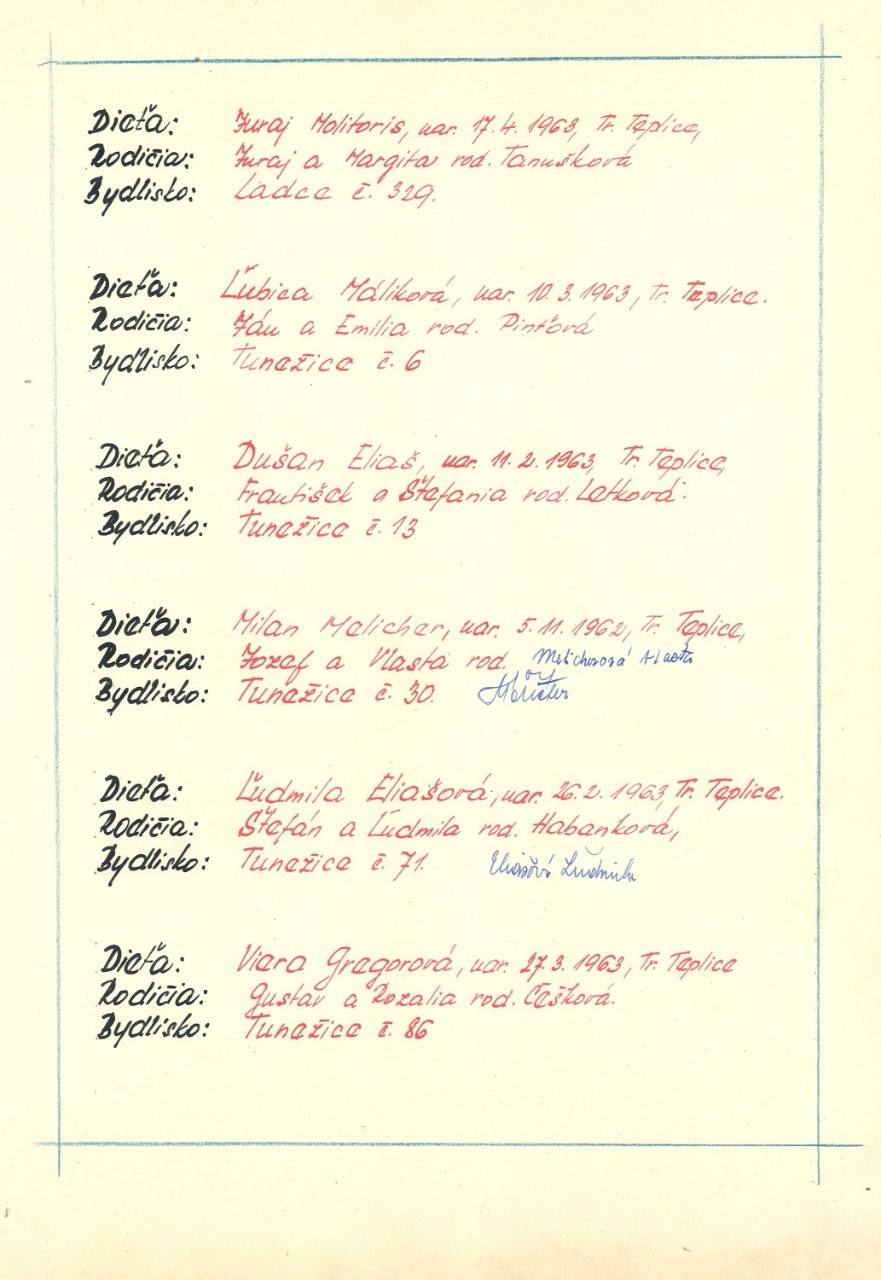 Dieťa: Juraj Molitoris, nar. 17. 4. 1963, Tr. Teplice,
Rodičia: Juraj a Margita rod. Tanušková
Bydlisko: Ladce č. 329.
Dieťa: Ľubica Máliková, nar. 10. 3. 1963, Tr. Teplice.
Rodičia: Ján a Emilia rod. Pinťová
Bydlisko: Tunežice č. 6
Dieťa: Dušan Eliaš, nar. 11. 2. 1963, Tr. Teplice,
Rodičia: František a Štefania rod. Letková.
Bydlisko: Tunežice č. 13
Dieťa: Milan Melicher, nar. 5. 11. 1962, Tr. Teplice,
Rodičia: Jozef a Vlasta rod. Melicherová Vlasta
Bydlisko: Tunežice č. 30.
Dieťa: Ľudmila Eliašová, nar. 26. 2. 1963, Tr. Teplice.
Rodičia: Štefán a Ľudmila rod. Habanková,
Bydlisko: Tunežice č. 71. Eliašová Ľudmila
Dieťa: Viera Gregorová, nar. 27. 3. 1963, Tr. Teplice
Rodičia: Gustav a Rozalia rod. Češková.
Bydlisko: Tunežice č. 86